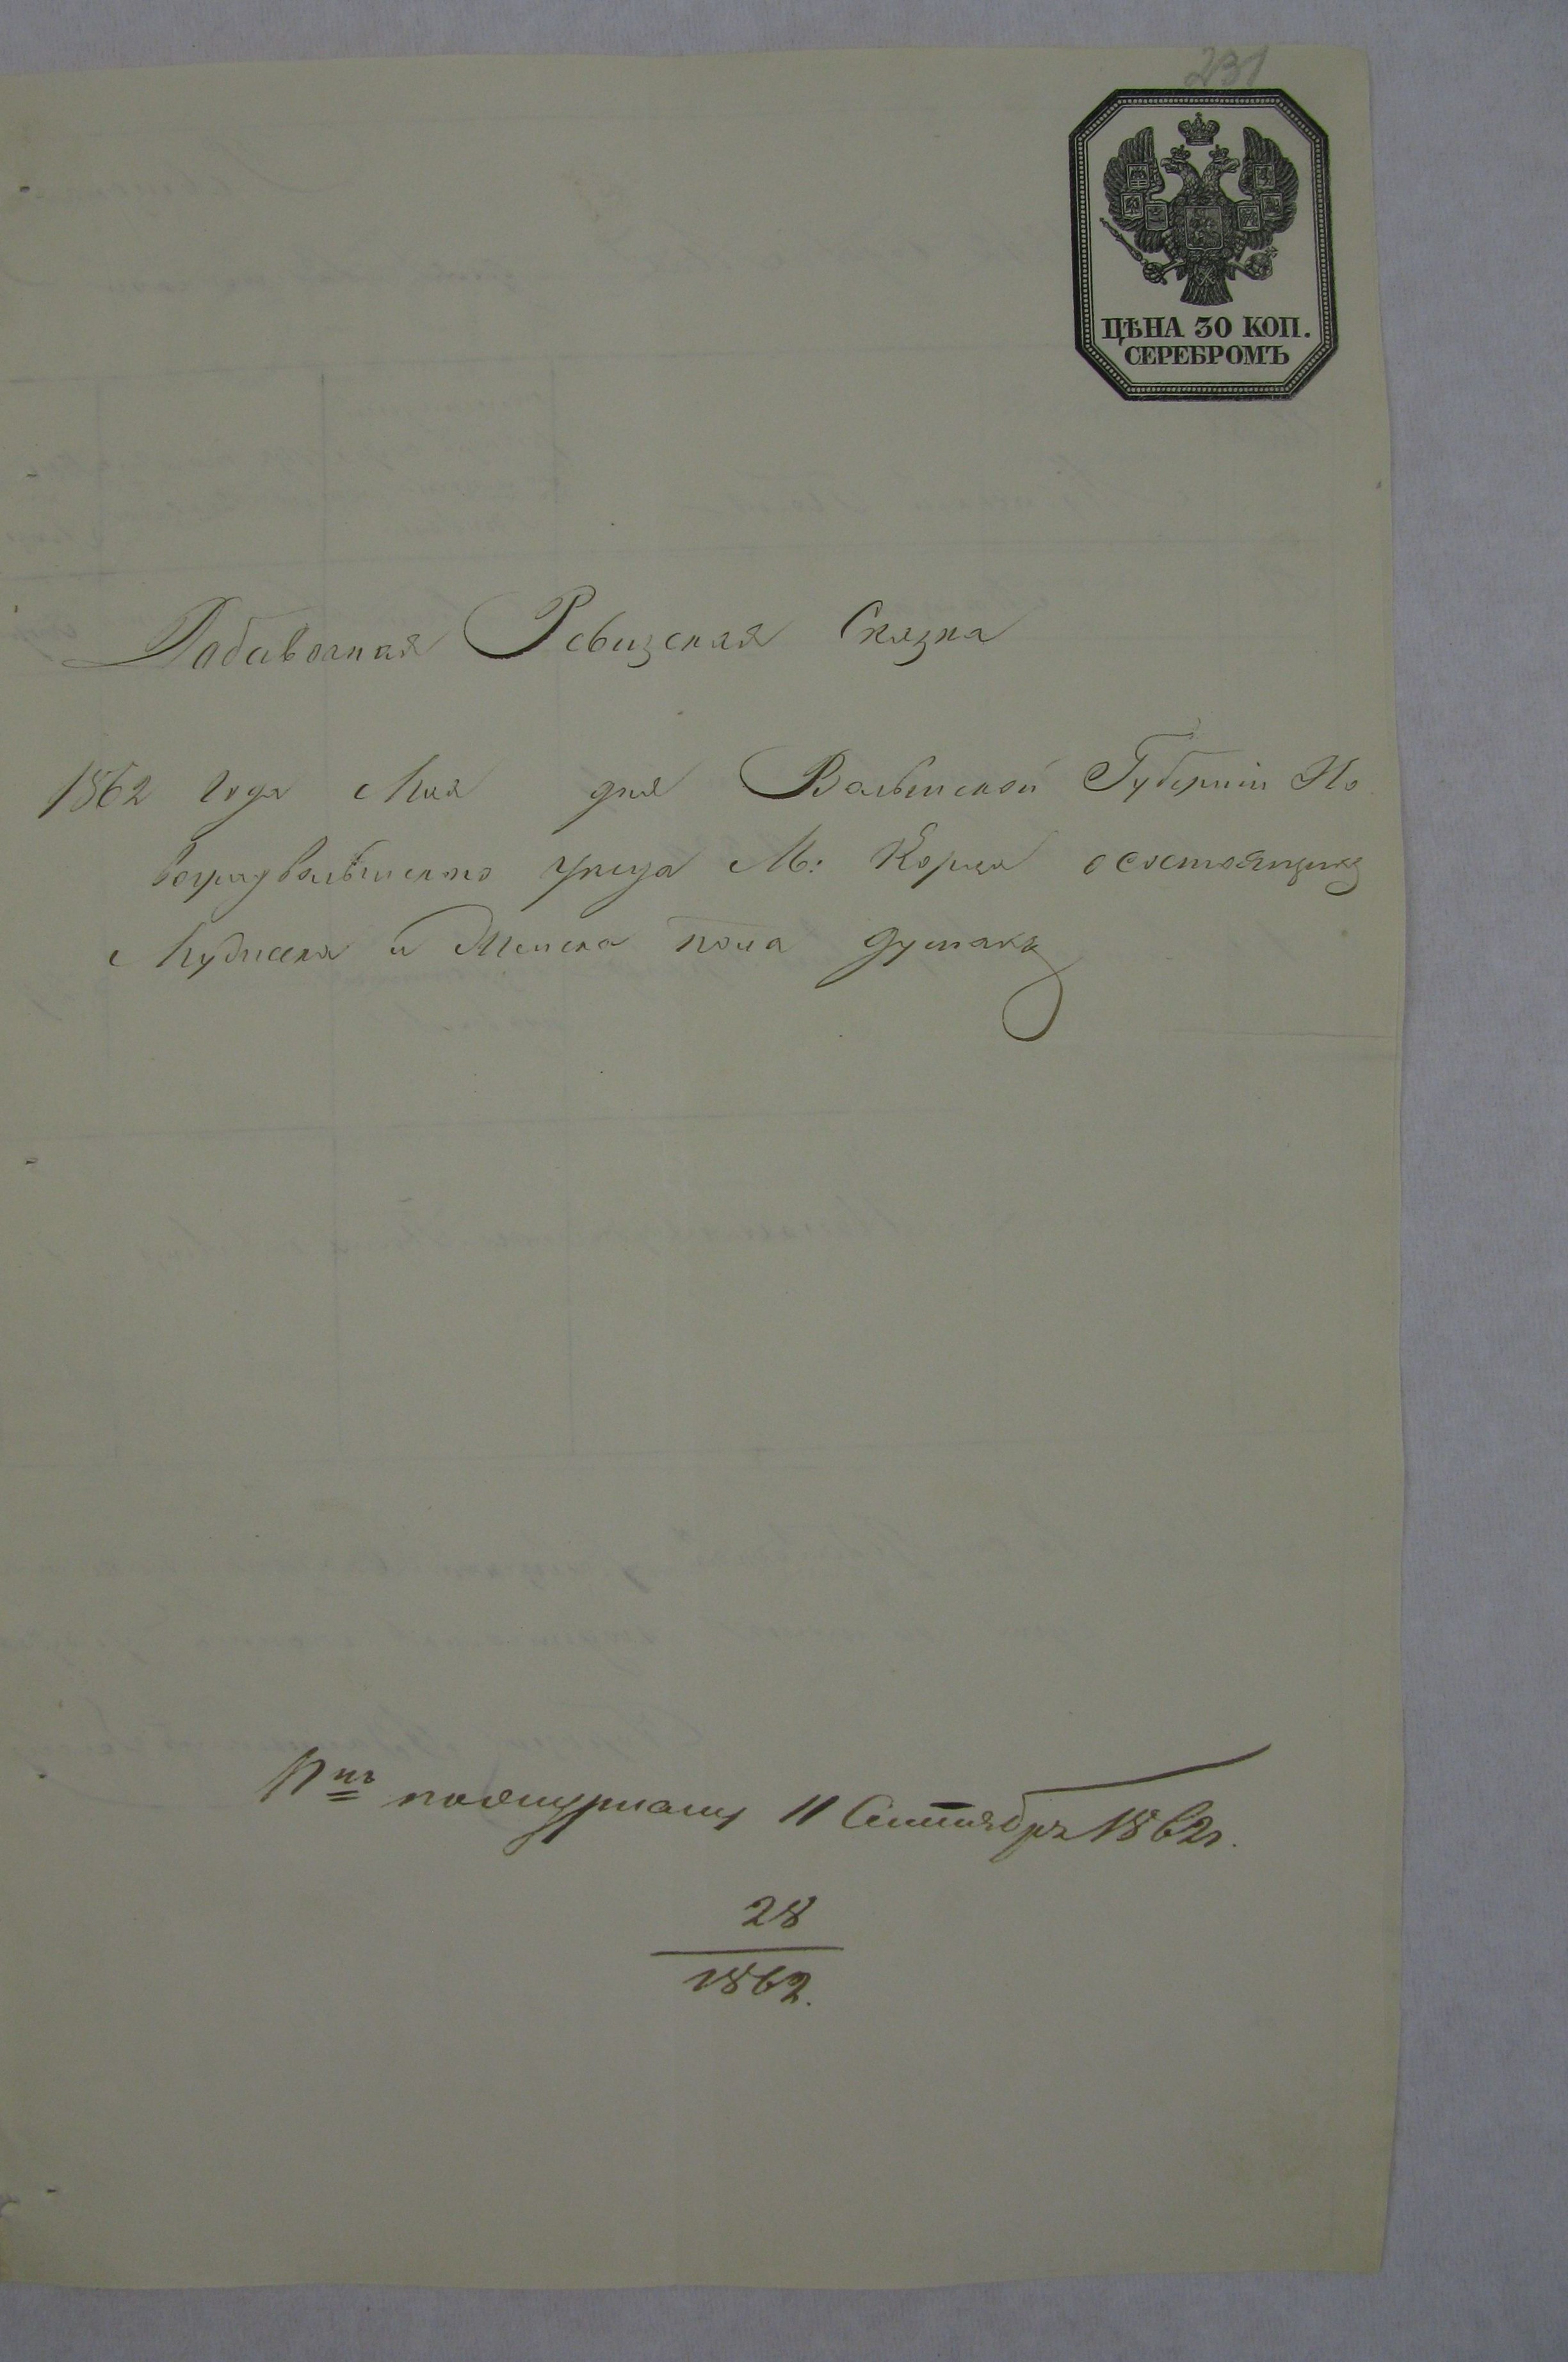 231
ЦѢНА 30 КОП.
СЕРЕБРОМЪ
Добавочная Ревизская Сказка
1862 года Мая дня Волынской Губерніи Но
воградволынскаго уезда М: Корца о состоящихъ
Мужеска и Женска пола душахъ
по журналу 11 Сентября 1862г.
28
1862.